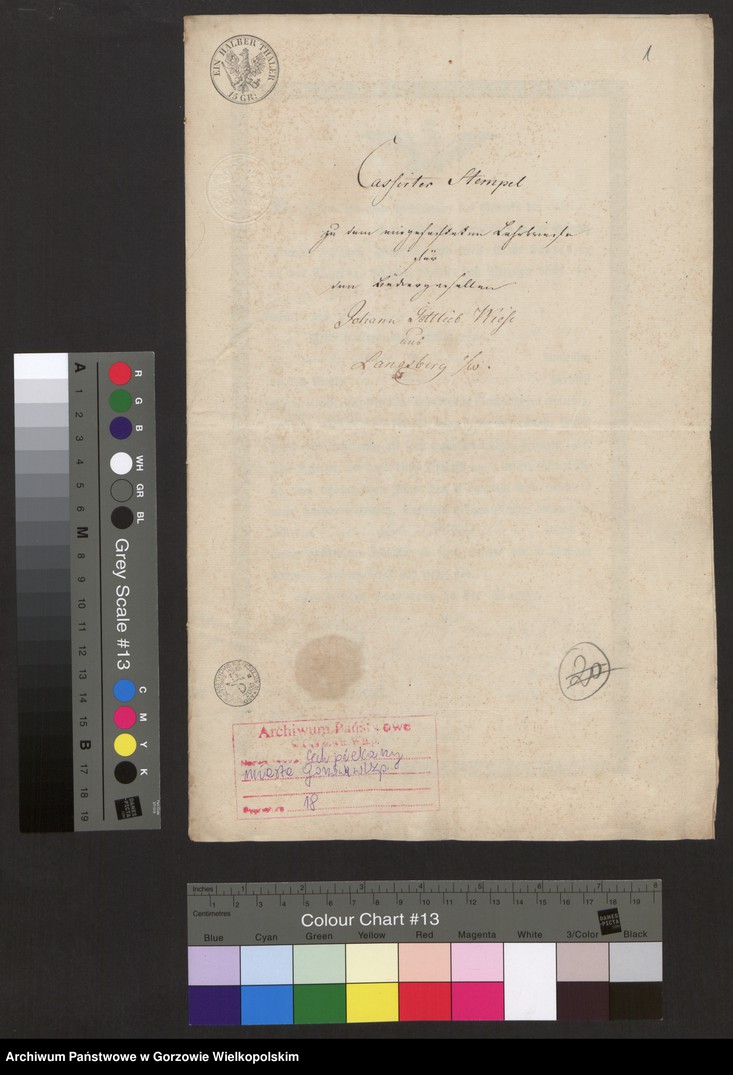 EIN HALBER THALER
15 GR:
1
Cassirter Stempel
zu dem ausgefertigten Lehrbriefe
für
den Bäckergesellen
Johann Gottlieb
aus
Landsberg a/W.
20
Archiwum Państwowe
w Gorzowie Wlkp.
Cech piekarzy
miasta Gorzowa Wlkp.
Sygnatura 18
A 1 2 3 4 5 6 M 8 9 10 11 12 13 14 15 B 17 18 19
R G B WH GR BL
Grey Scale #13
C M Y K
DANES PICTA
Inches 1 2 3 4 5 6 7 8
1 2 3 4 5 6 7 8 9 10 11 12 13 14 15 16 17 18 19
Centimetres
Colour Chart #13
DANES PICTA
Blue Cyan Green Yellow Red Magenta White 3/Color Black
Archiwum Państwowe w Gorzowie Wielkopolskim